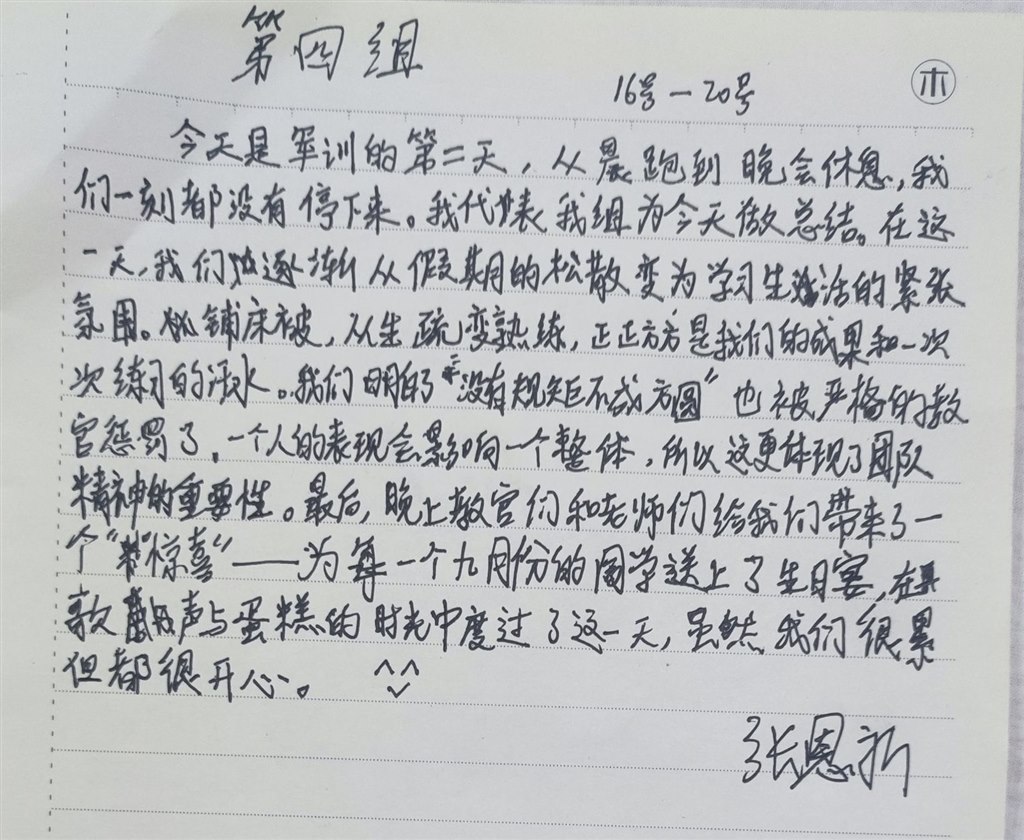 第四组
16号—20号
木
今天是军训的第二天，从晨跑到晚会休息，我
们一刻都没有停下来。我代表我组为今天做总结。在这
一天，我们逐渐从假期的松散变为学习生活的紧张
氛围。铺床被，从生疏变熟练，正正方方是我们的成果和一次
次练习的汗水。我们明白了“没有规矩不成方圆”也被严格的教
官惩罚了，一个人的表现会影响一个整体，所以这更体现了团队
精神的重要性。最后，晚上教官们和老师们给我们带来了一
个“惊喜”——为每一个九月份的同学送上了生日宴，在
歌声与蛋糕的时光中度过了这一天，虽然我们很累
但都很开心。 ^^
张恩沂